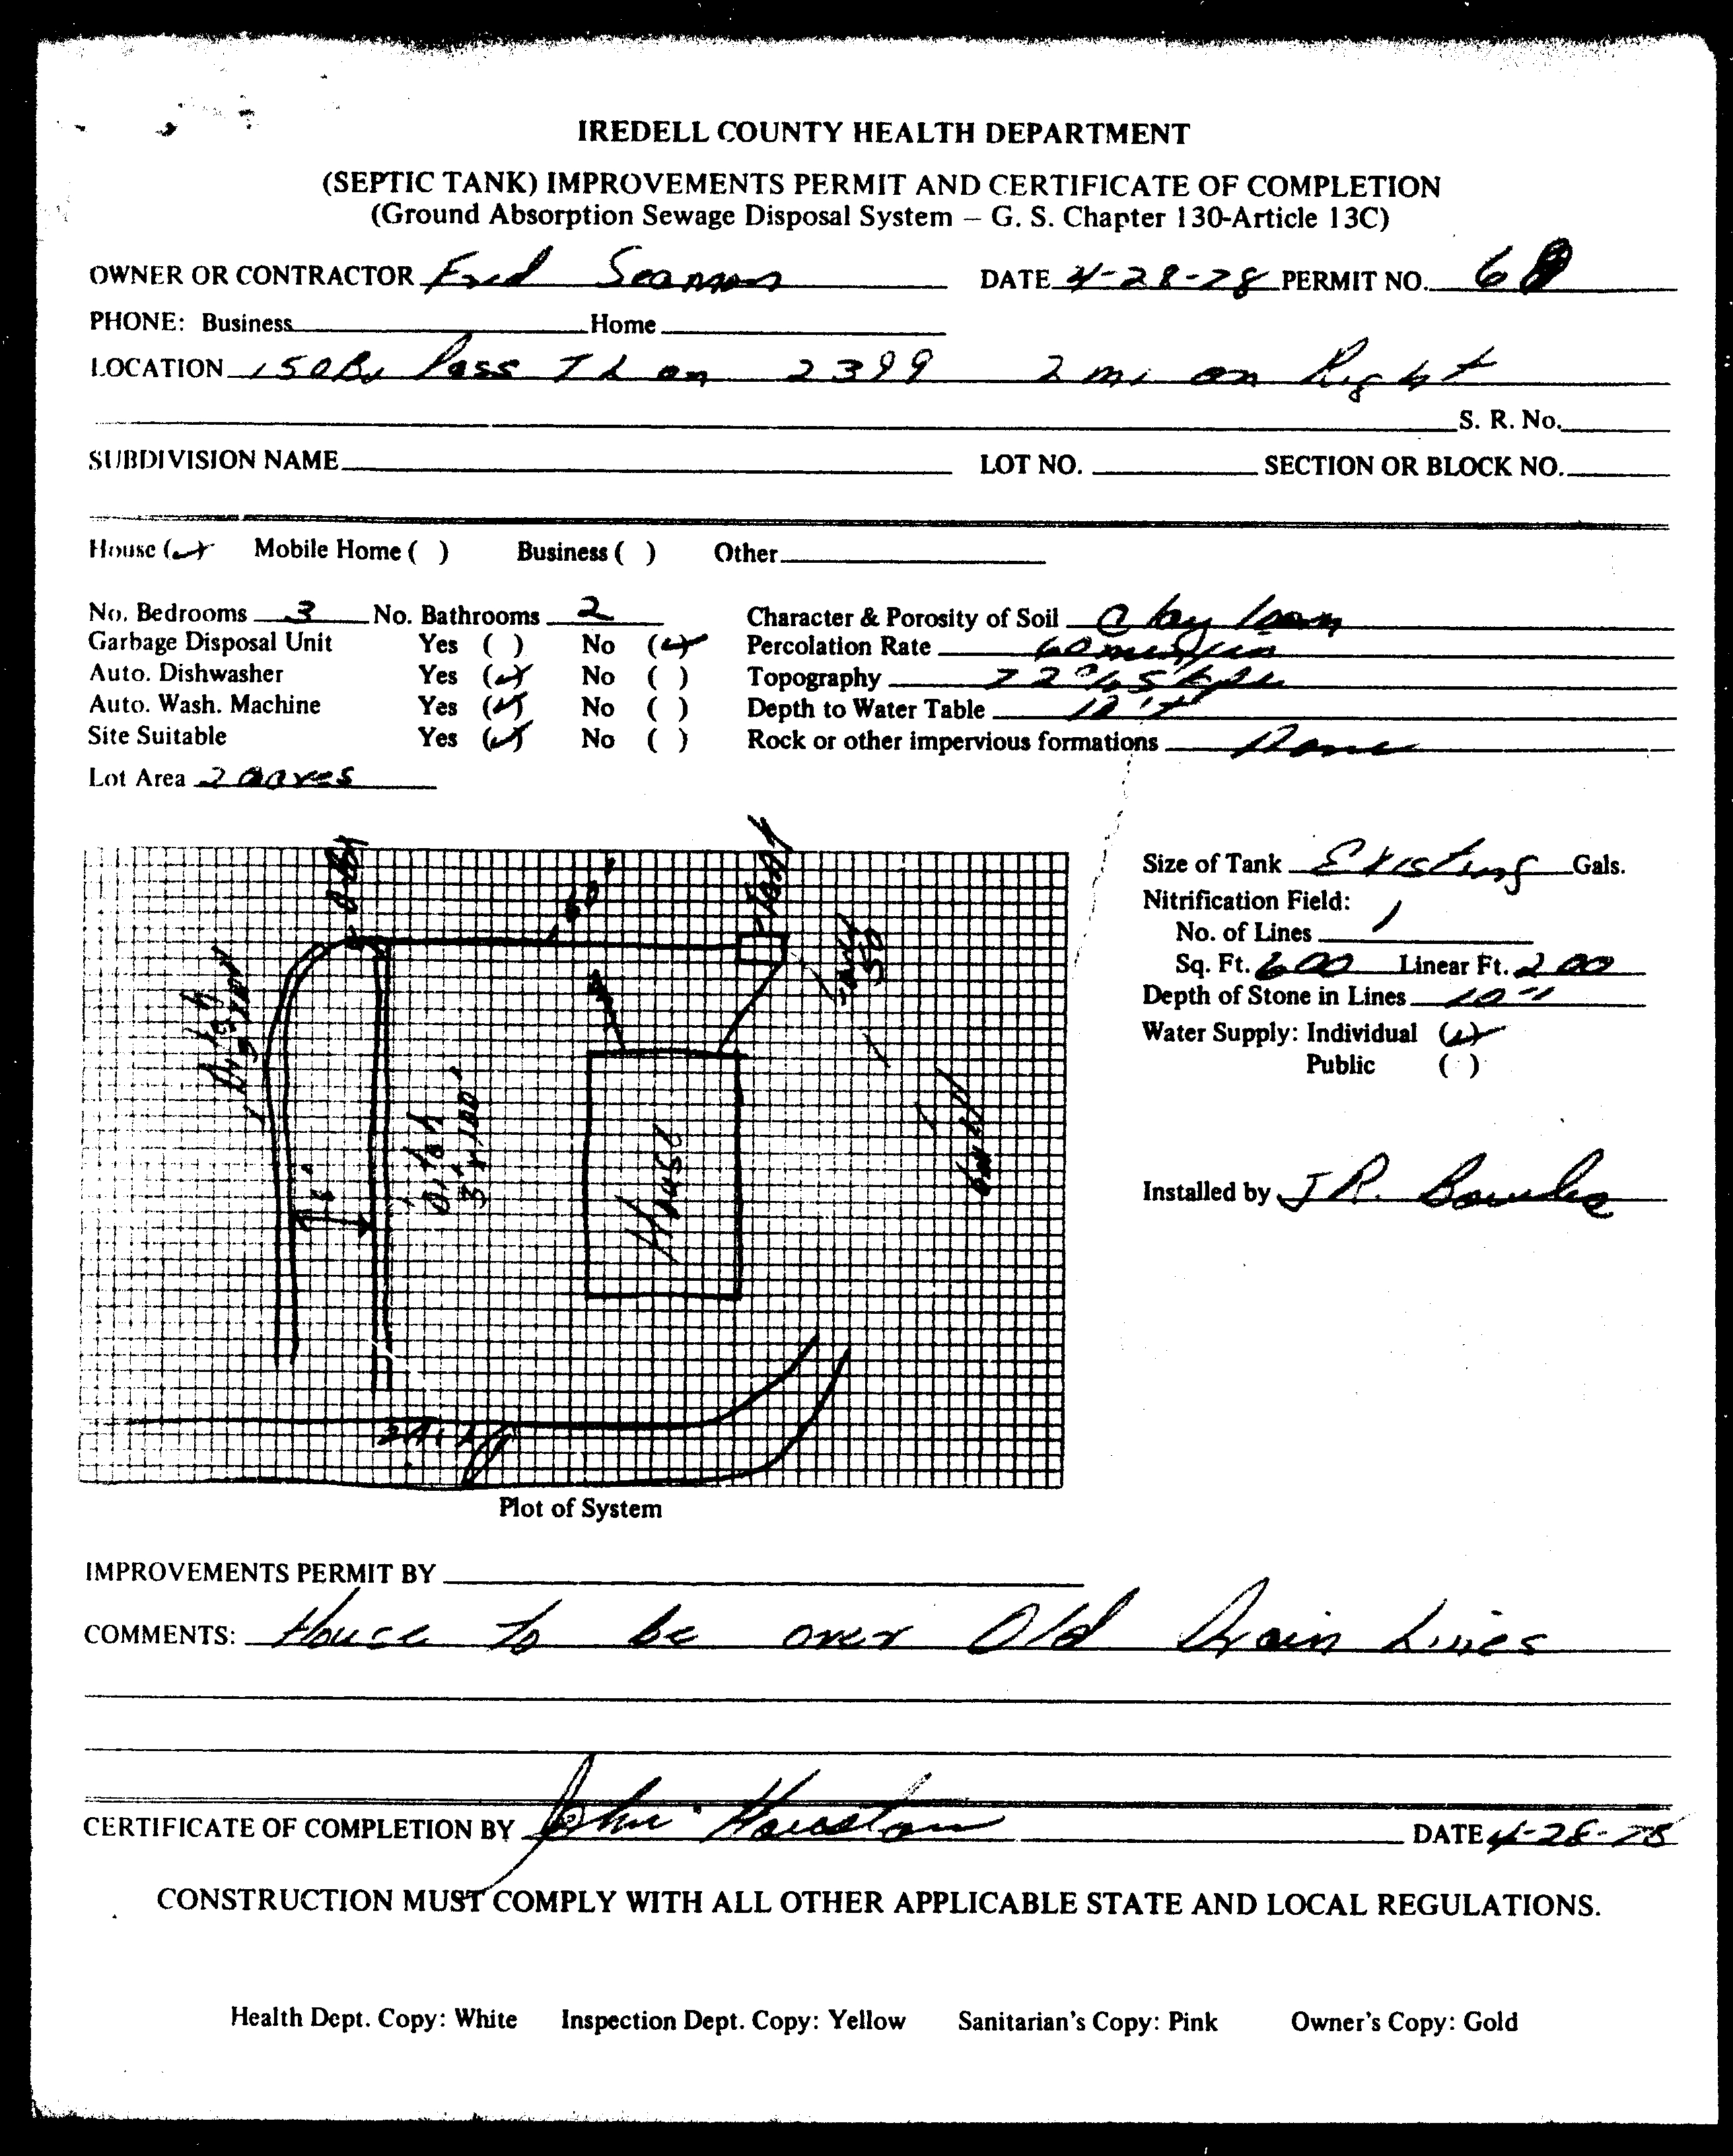 IREDELL COUNTY HEALTH DEPARTMENT
(SEPTIC TANK) IMPROVEMENTS PERMIT AND CERTIFICATE OF COMPLETION
(Ground Absorption Sewage Disposal System — G. S. Chapter 130-Article 13C)
OWNER OR CONTRACTOR Fred DATE 4-28-78 PERMIT NO. 6
PHONE: Business Home
LOCATION 150 By Pass TL on 2399 2 mi on Right
S. R. No.
SUBDIVISION NAME LOT NO. SECTION OR BLOCK NO.
House (✓) Mobile Home ( ) Business ( ) Other
No. Bedrooms 3 No. Bathrooms 2 Character & Porosity of Soil Clay loam
Garbage Disposal Unit Yes ( ) No (✓) Percolation Rate 60 min/in
Auto. Dishwasher Yes (✓) No ( ) Topography
Auto. Wash. Machine Yes (✓) No ( ) Depth to Water Table
Site Suitable Yes (✓) No ( ) Rock or other impervious formations None
Lot Area 2 acres
Size of Tank Existing Gals.
Nitrification Field:
No. of Lines 1
Sq. Ft. 600 Linear Ft. 200
Depth of Stone in Lines 10"
Water Supply: Individual (✓)
Public ( )
Installed by J R. Bowles
60'
Ditch
3'x100'
Ditch
3'x100'
House
well
Plot of System
IMPROVEMENTS PERMIT BY
COMMENTS: House to be over Old Drain Lines
CERTIFICATE OF COMPLETION BY John Houston DATE 4-28-78
CONSTRUCTION MUST COMPLY WITH ALL OTHER APPLICABLE STATE AND LOCAL REGULATIONS.
Health Dept. Copy: White Inspection Dept. Copy: Yellow Sanitarian's Copy: Pink Owner's Copy: Gold